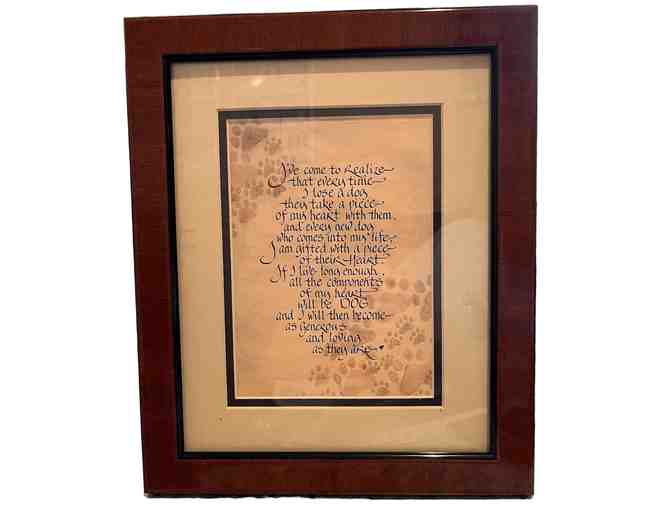 I've come to Realize
that every time
I lose a dog
they take a piece
of my heart with them,
and every new dog
who comes into my life,
I am gifted with a piece
of their Heart.
If I live long enough,
all the components
of my heart
will be DOG
and I will then become
as generous
and loving
as they are